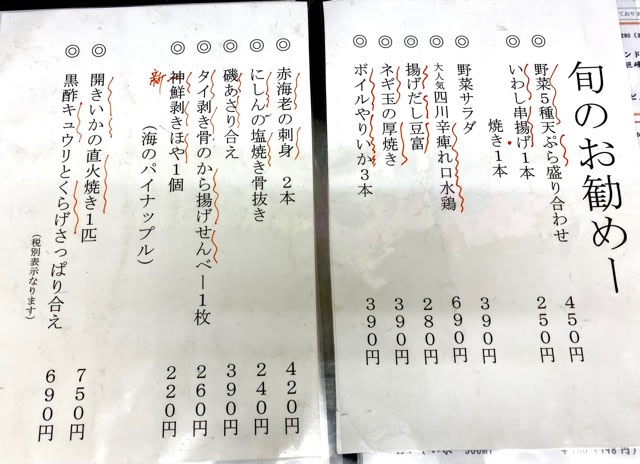 旬のお勧めー
◎野菜5種天ぷら盛り合わせ 450円
◎いわし串揚げ1本 250円
焼き1本
◎野菜サラダ 390円
◎大人気四川辛痺れ口水鶏 690円
◎揚げだし豆富 280円
◎ネギ玉の厚焼き 390円
◎ボイルやりいか3本 390円
◎赤海老の刺身 2本 420円
◎にしんの塩焼き骨抜き 240円
◎磯あさり合え 390円
◎タイ剥き骨のから揚げせんべー1枚 260円
◎神鮮剥きほや1個 220円
新
(海のパイナップル)
◎開きいかの直火焼き1匹 750円
◎黒酢キュウリとくらげさっぱり合え 690円
(税別表示なります)